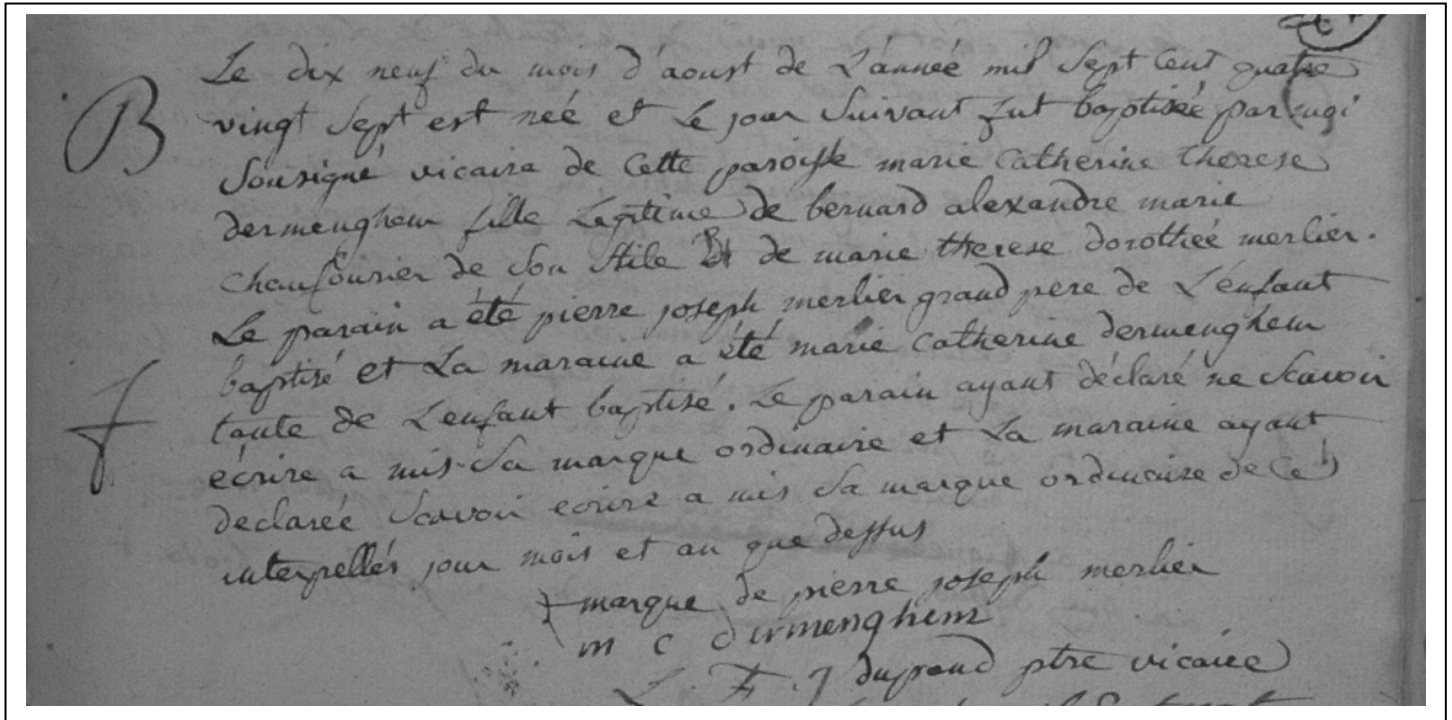 B
Le dix neuf du mois d'aoust de L'année mil sept cent quatre
vingt sept est neé et Le jour suivant fut baptisée par
sousigné vicaire de cette paroisse marie catherine therese
dermenghem fille Legitime de bernard alexandre marie
chaufourier de son stile Et de marie therese dorotheé merlier.
Le parain a été pierre joseph merlier grand pere de L'enfant
baptisé et La maraine a été marie catherine dermenghem
tante de L'enfant baptisé. Le parain ayant déclaré ne scavoir
écrire a mis sa marque ordinaire et La maraine ayant
declareé scavoir ecrire a mis sa marque ordinaire de ce
interpellés jour mois et an que dessus
marque de pierre joseph merlier
m c dermenghem
L. F. J dupond ptre vicaire